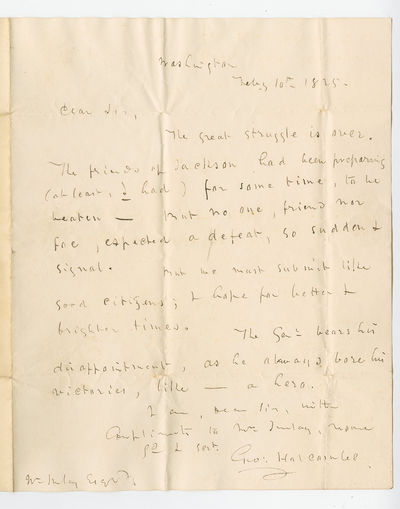 Washington
Feby 10th 1825.
Dear Sir,
The great struggle is over.
The friends of Jackson had been preparing
(at least, I had) for some time, to be
beaten — But no one, friend nor
foe, expected a defeat, so sudden &
signal. But we must submit like
good citizens; & hope for better &
brighter times. The Genl bears his
disappointment, as he always bore his
victories, like — a hero.
I am, Dear Sir, with
Compliments to Mrs Imlay, Your
&
Geo: Holcombe.
Wm Imlay Esqr